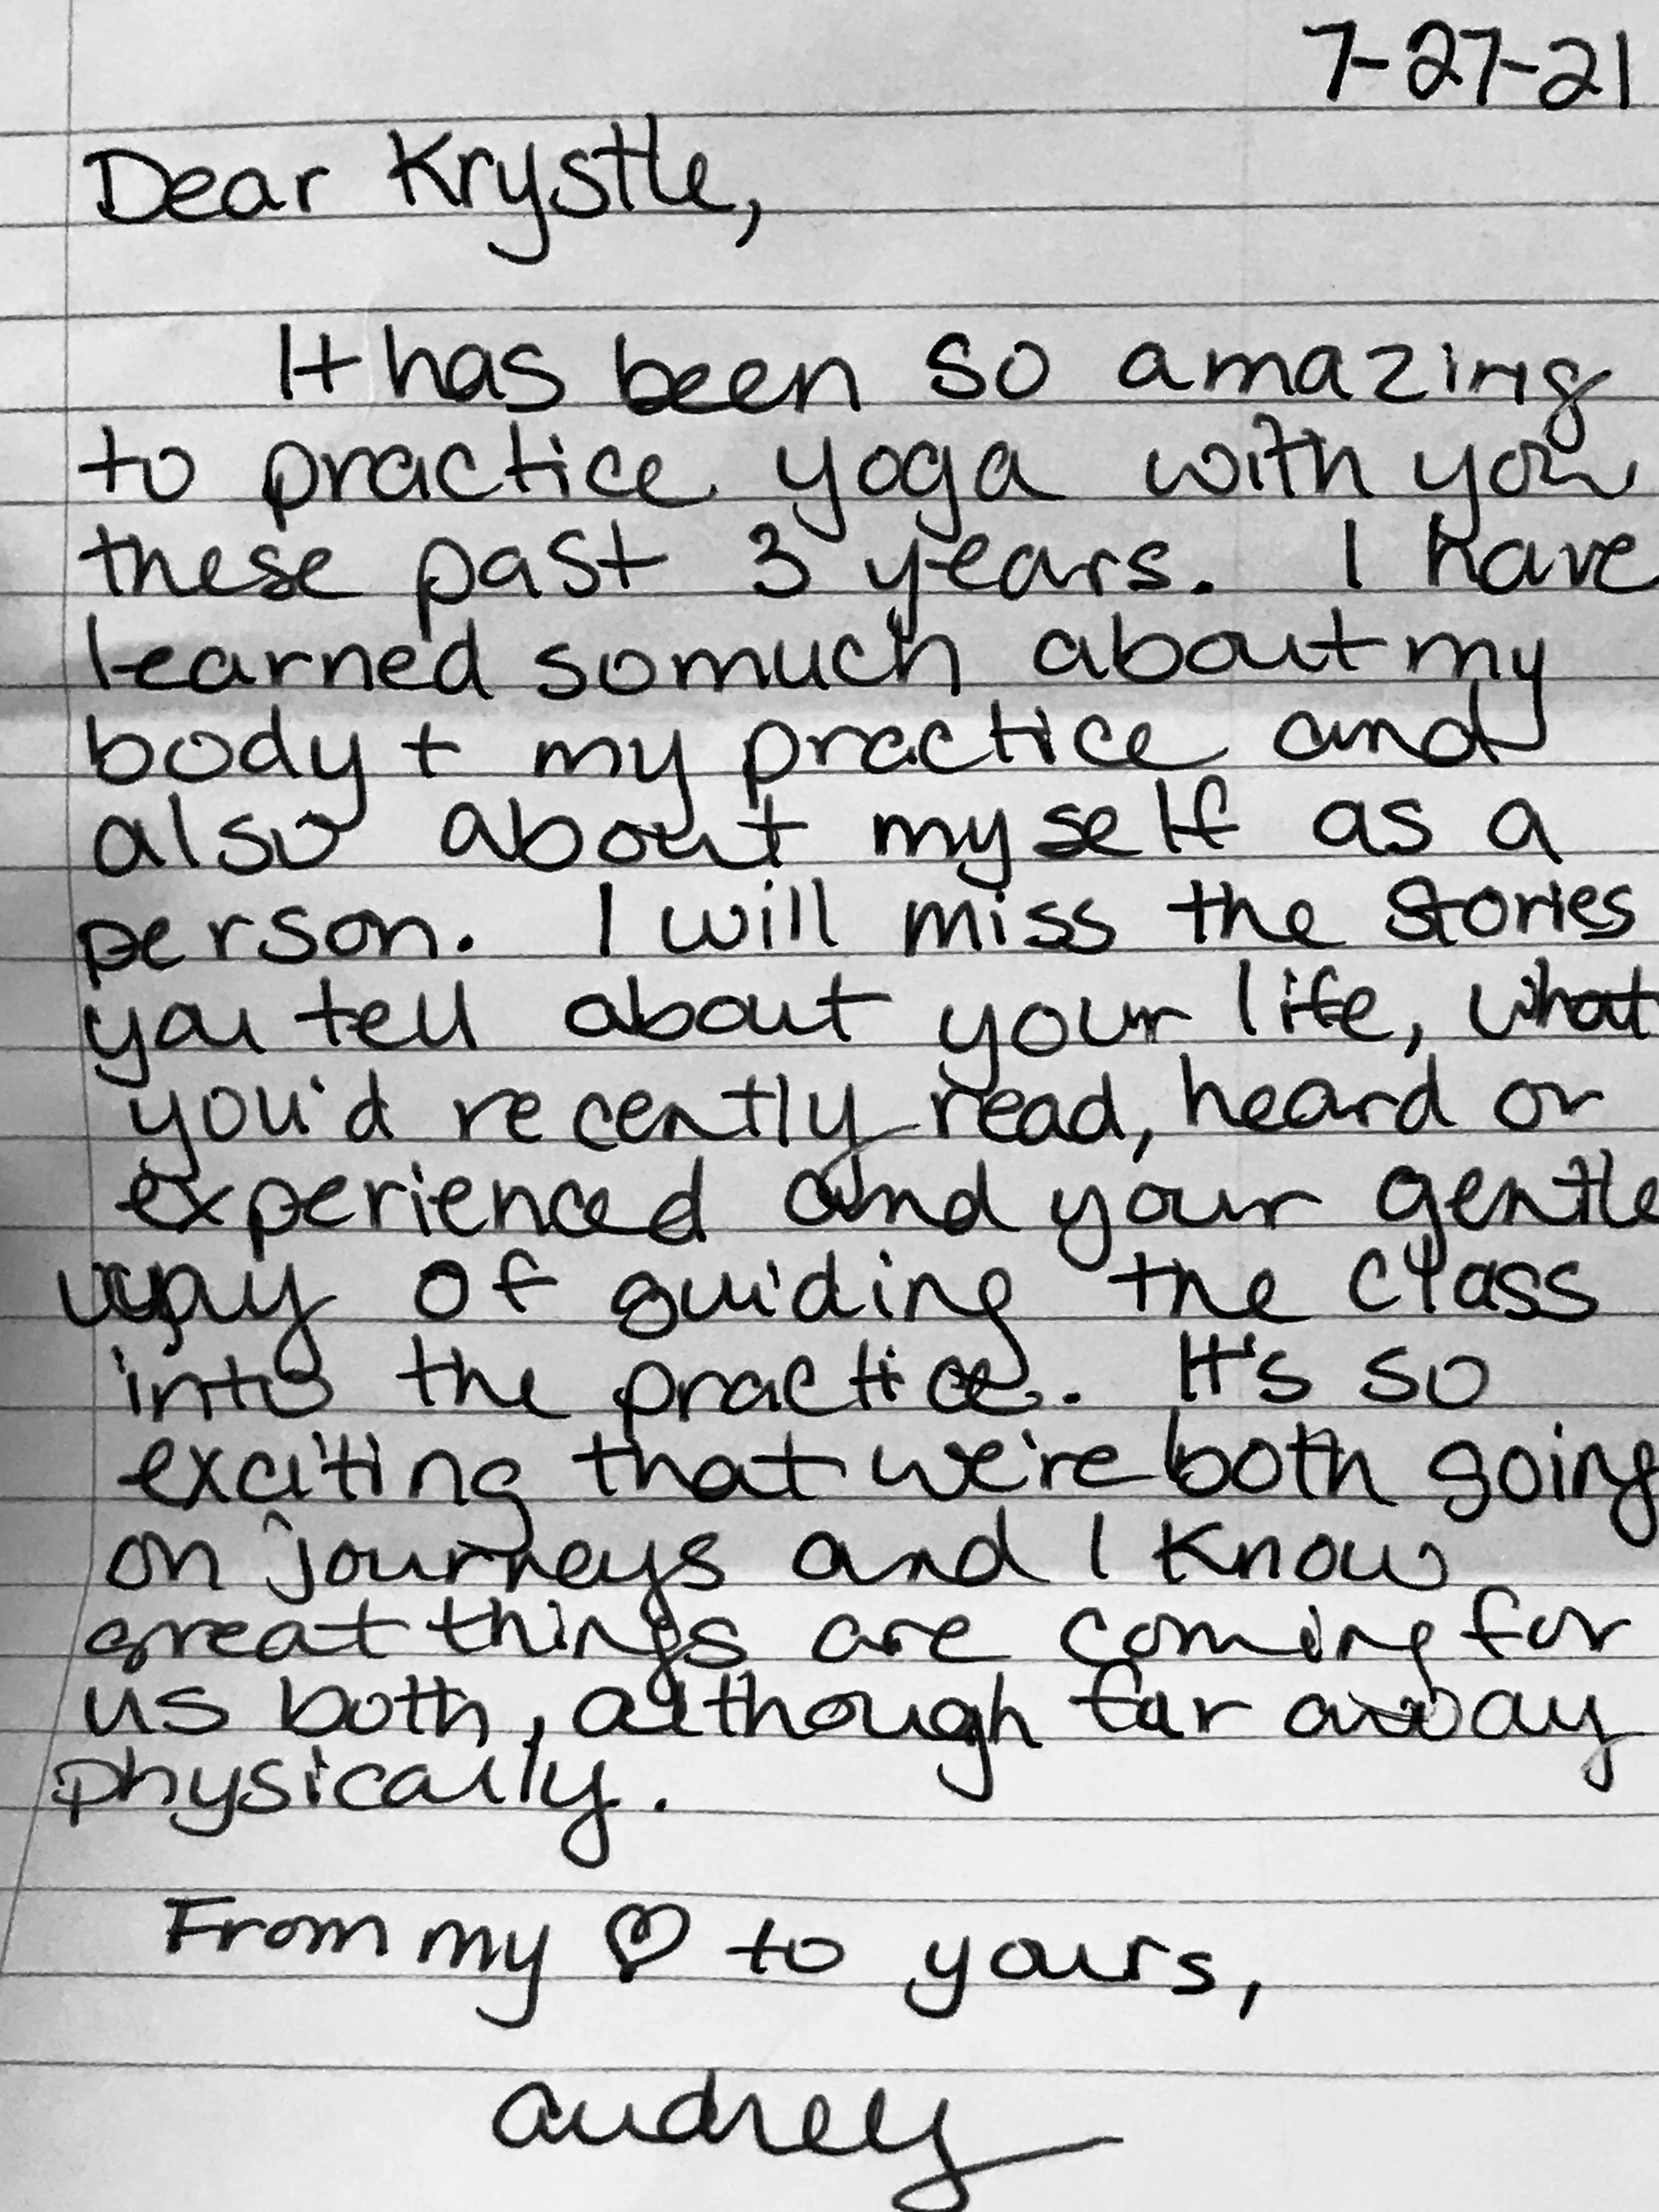 7-27-21
Dear Krystle,
It has been so amazing
to practice yoga with you
these past 3 years. I have
learned so much about my
body + my practice and
also about myself as a
person. I will miss the stories
you tell about your life, what
you'd recently read, heard or
experienced and your gentle
way of guiding the class
into the practice. It's so
exciting that we're both going
on journeys and I know
great things are coming for
us both, although far away
physically.
From my ♡ to yours,
audrey